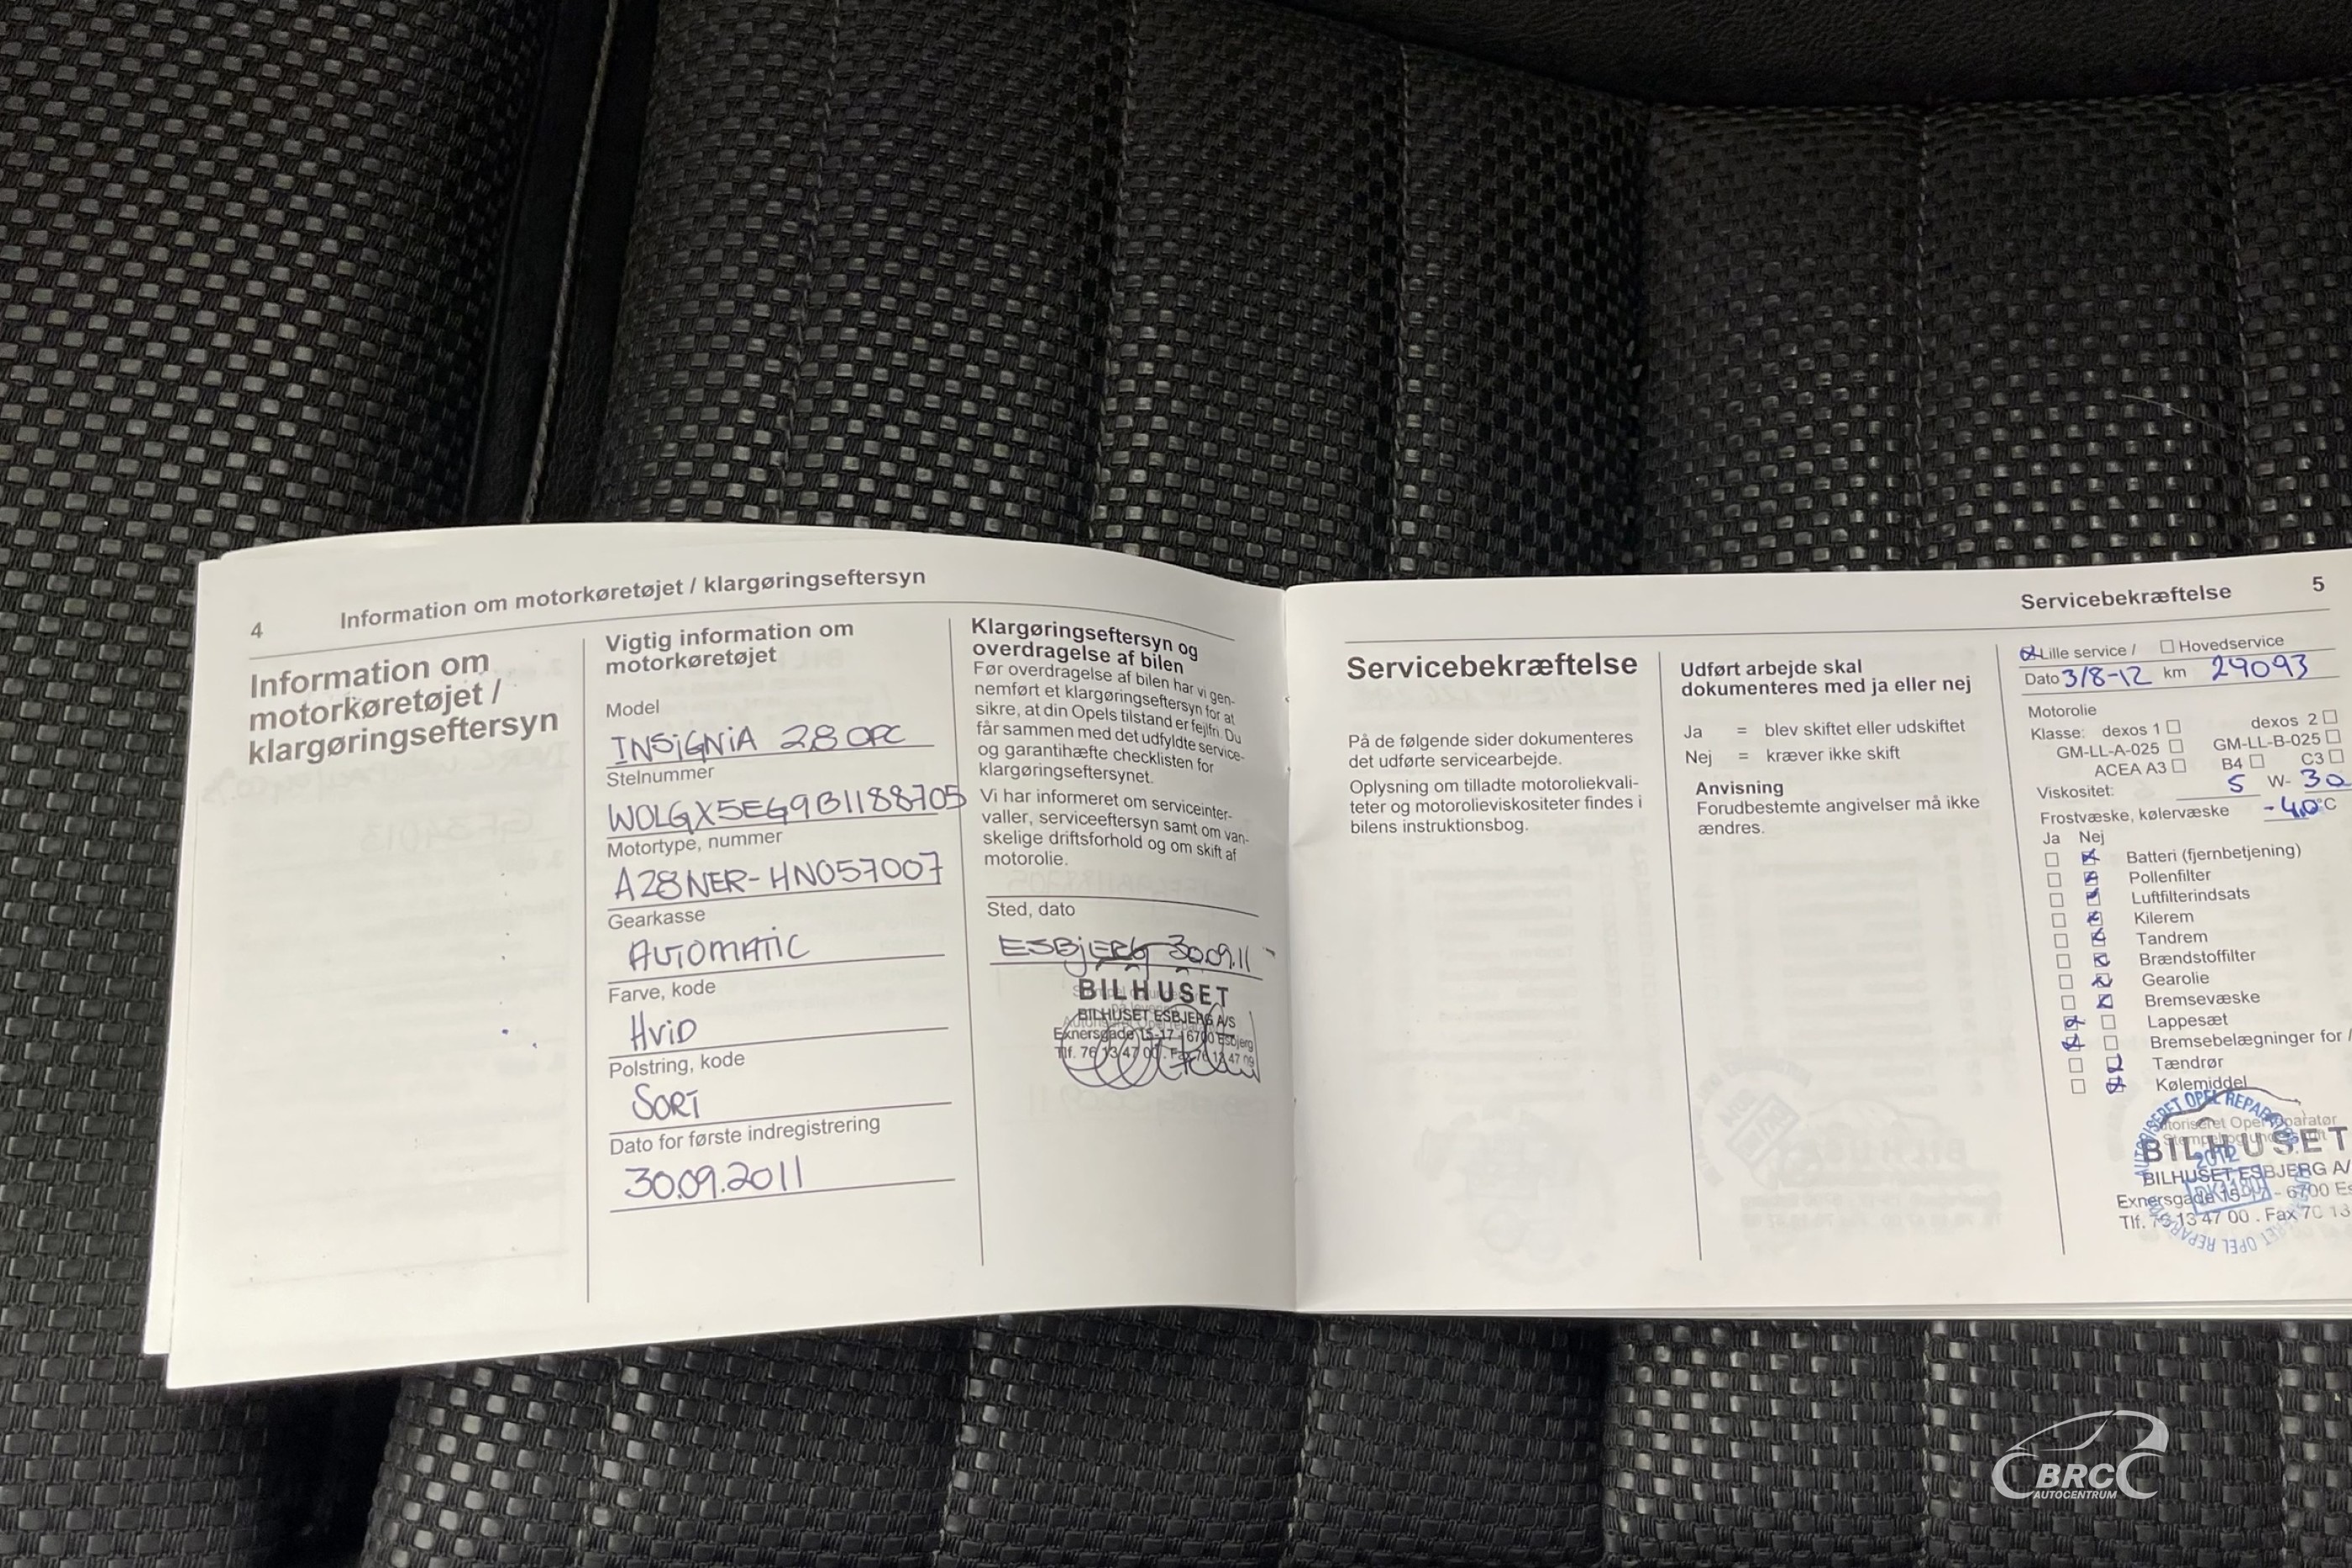 4 Information om motorkøretøjet / klargøringseftersyn
Information om
motorkøretøjet /
klargøringseftersyn
Vigtig information om
motorkøretøjet
Model
INSIGNIA 2.8 OPC
Stelnummer
W0LGX5EG9B1188705
Motortype, nummer
A28NER-HN057007
Gearkasse
AUTOMATIC
Farve, kode
HVID
Polstring, kode
SORT
Dato for første indregistrering
30.09.2011
Klargøringseftersyn og
overdragelse af bilen
Før overdragelse af bilen har vi gen-
nemført et klargøringseftersyn for at
sikre, at din Opels tilstand er fejlfri. Du
får sammen med det udfyldte service-
og garantihæfte checklisten for
klargøringseftersynet.
Vi har informeret om serviceinter-
valler, serviceeftersyn samt om van-
skelige driftsforhold og om skift af
motorolie.
Sted, dato
ESBJERG 30.09.11
BILHUSET
BILHUSET ESBJERG A/S
Exnersgade 15-17 . 6700 Esbjerg
Tlf. 76 13 47 00 . Fax 76 13 47 09
Servicebekræftelse 5
Servicebekræftelse
På de følgende sider dokumenteres
det udførte servicearbejde.
Oplysning om tilladte motoroliekvali-
teter og motorolieviskositeter findes i
bilens instruktionsbog.
Udført arbejde skal
dokumenteres med ja eller nej
Ja = blev skiftet eller udskiftet
Nej = kræver ikke skift
Anvisning
Forudbestemte angivelser må ikke
ændres.
Lille service / Hovedservice
Dato 3/8-12 km 29093
Motorolie
Klasse: dexos 1 dexos 2
GM-LL-A-025 GM-LL-B-025
ACEA A3 B4 C3
Viskositet: 5 W- 30
Frostvæske, kølervæske -40°C
Ja Nej
Batteri (fjernbetjening)
Pollenfilter
Luftfilterindsats
Kilerem
Tandrem
Brændstoffilter
Gearolie
Bremsevæske
Lappesæt
Bremsebelægninger for /
Tændrør
Kølemiddel
AUTORISERET OPEL REPARATØR
2012
BILHUSET
BILHUSET ESBJERG A/
Exnersgade 15-17 - 6700 Es
Tlf. 76 13 47 00 . Fax 76 13
BRC
AUTOCENTRUM